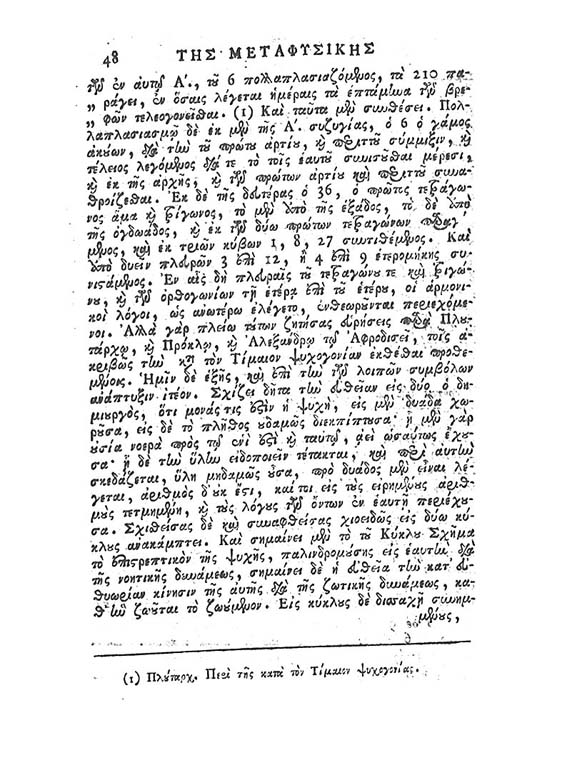 48 ΤΗΣ ΜΕΤΑΦΥΣΙΚΗΣ
τῶν ἐν αὐτῷ Α΄., τῦ 6 πολλαπλασιαζόμενος, τὰ 210 πα-
„ ράγει, ἐν ὅσαις λέγεται ἡμέραις τὰ ἑπτάμηνα τῶν βρε-
„ φῶν τελεογονεῖσθαι. (1) Καὶ ταῦτα μὲν συνθέσει. Πολ-
λαπλασιασμῷ δὲ ἐκ μὲν τῆς Α΄. συζυγίας, ὁ 6 ὁ γάμος
ἀκύων, διὰ τὴν τῦ πρώτυ ἀρτίυ, καὶ περιττῦ σύμμιξιν, καὶ
τέλειος λεγόμενος διά τε τὸ τοῖς ἑαυτῦ συνίσταθαι μέρεσι,
καὶ ἐκ τῆς ἀρχῆς, καὶ τῶν πρώτων ἀρτίυ καὶ περιττῦ συνα-
θροίζεσθαι. Ἐκ δὲ τῆς δευτέρας ὁ 36, ὁ πρῶτος τετράγω-
νος ἅμα καὶ τρίγωνος, τὸ μὲν ἀπὸ τῆς ἑξάδος, τὸ δὲ ἀπὸ
τῆς ὀγδοάδος, καὶ ἐκ τῶν δύω πρώτων τετραγώνων παραγό-
μενος, καὶ ἐκ τριῶν κύβων 1, 8, 27 συντιθέμενος. Καὶ
ἀπὸ δυεῖν πλευρῶν 3 ἐπὶ 12, ἢ 4 ἐπὶ 9 ἑτερομήκης συ-
νιστάμενος. Ἐν αἷς δὴ πλευραῖς τῦ τετραγώνυ τε καὶ τριγώ-
νυ, καὶ τῶν ὀρθογωνίων τῇ ἑτέρᾳ ἐπὶ τῦ ἑτέρυ, οἱ ἁρμονι-
κοὶ λόγοι, ὡς ἀνωτέρω ἐλέγετο, ἐνθεωρῦνται περιεχόμε-
νοι. Ἀλλὰ γὰρ πλείω τύτων ζητήσας εὑρήσεις παρὰ Πλυ-
τάρχῳ, καὶ Πρόκλῳ, καὶ Ἀλεξάνδρῳ τῷ Ἀφροδισεῖ, τοῖς ἀ-
κριβῶς τὴν κατὰ τὸν Τίμαιον ψυχογονίαν ἐκθέσθαι προθε-
μένοις. Ἡμῖν δὲ ἑξῆς, καὶ ἐπὶ τὴν τῶν λοιπῶν συμβόλων
ἀνάπτυξιν ἰτέον. Σχίζει δῆτα τὴν εὐθεῖαν εἰς δύο ὁ δη-
μιυργὸς, ὅτι μονάς τις ἐστὶν ἡ ψυχὴ, εἰς μὲν δυάδα χω-
ρῦσα, εἰς δὲ τὸ πλῆθος ὐδαμῶς διεκπίπτυσα· ἡ μὲν γὰρ
ὐσία νοερὰ πρὸς τῷ ἑνί ἐστι καὶ ταὐτῷ, ἀεὶ ὡσαύτως ἔχυ-
σα· ἡ δὲ τὴν ὕλην εἰδοποιεῖν τέτακται, καὶ περὶ αὐτὴν
σκεδάζεται, ὕλη μηδαμῶς ὖσα, πρὸ δυάδος μὲν εἶναι λέ-
γεται, ἀριθμὸς δ᾽ ὐκ ἔτι, καί τοι εἰς τὺς εἰρημένυς ἀριθ-
μὺς τετμημένη, καὶ τὺς λόγυς τῶν ὄντων ἐν ἑαυτῇ περιέχυ-
σα. Σχισθείσας δὲ καὶ συναφθείσας χιοειδῶς εἰς δύω κύ-
κλυς ἀνακάμπτει. Καὶ σημαίνει μὲν τὸ τῦ Κύκλυ Σχῆμα
τὸ ἐπιστρεπτικὸν τῆς ψυχῆς, παλινδρομύσης εἰς ἑαυτὴν διὰ
τῆς νοητικῆς δυνάμεως, σημαίνει δὲ ἡ εὐθεῖα τὴν κατ᾽ εὐ-
θυωρίαν κίνησιν τῆς αὐτῆς διὰ τῆς ζωτικῆς δυνάμεως, κα-
θ᾽ ἣν ζωῦται τὸ ζωύμενον. Εἰς κύκλυς δὲ δισσαχῆ συνημ-
μένυς,
(1) Πλύταρχ. Περὶ τῆς κατὰ τὸν Τίμαιον ψυχογονίας.